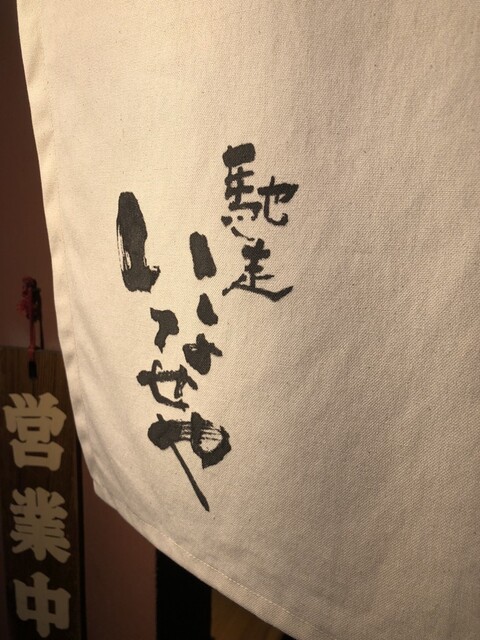 馳走
いなせや
営業中